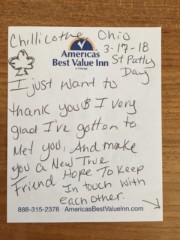 Chillicothe Ohio
Americas
Best Value Inn
3-17-18
St Patty
Day
I just want to
thank you & I very
glad I've gotten to
Met you, And make
you a New True
Friend Hope To Keep
In touch with
each other.
888-315-2378 AmericasBestValueInn.com